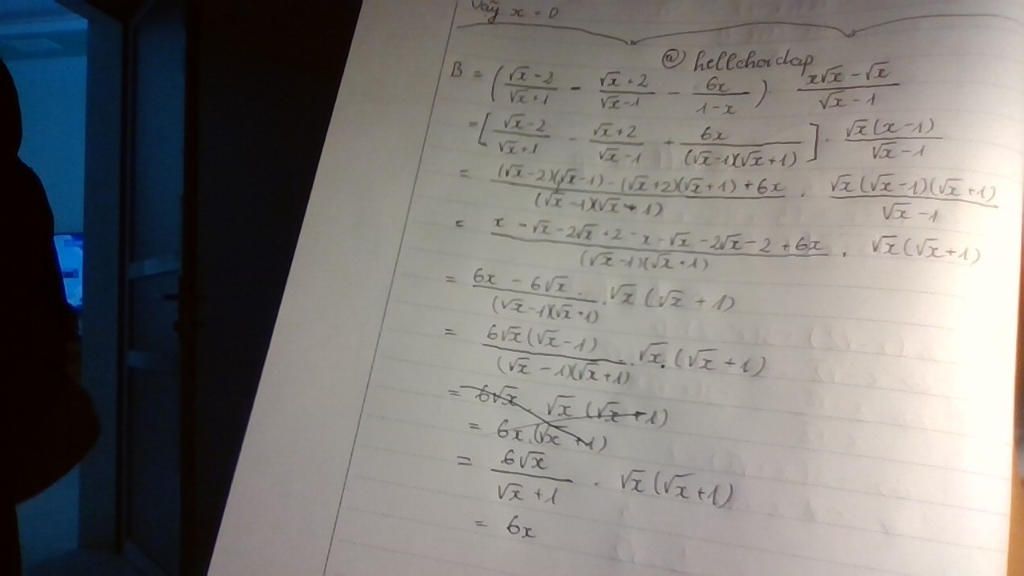 Vậy x = 0
@ hellchordap
B = ( (√x-2)/(√x+1) - (√x+2)/(√x-1) - 6x/(1-x) ) (x√x-√x)/(√x-1)
= [ (√x-2)/(√x+1) - (√x+2)/(√x-1) + 6x/((√x-1)(√x+1)) ] . √x(x-1)/(√x-1)
= ((√x-2)(√x-1)-(√x+2)(√x+1)+6x)/((√x-1)(√x+1)) . √x(√x-1)(√x+1)/(√x-1)
= (x-√x-2√x+2-x-√x-2√x-2+6x)/((√x-1)(√x+1)) . √x(√x+1)
= (6x-6√x)/((√x-1)(√x+1)) . √x(√x+1)
= 6√x(√x-1)/((√x-1)(√x+1)) . √x.(√x+1)
= 6√x √x(√x+1)
= 6x.(√x+1)
= 6√x/(√x+1) . √x(√x+1)
= 6x